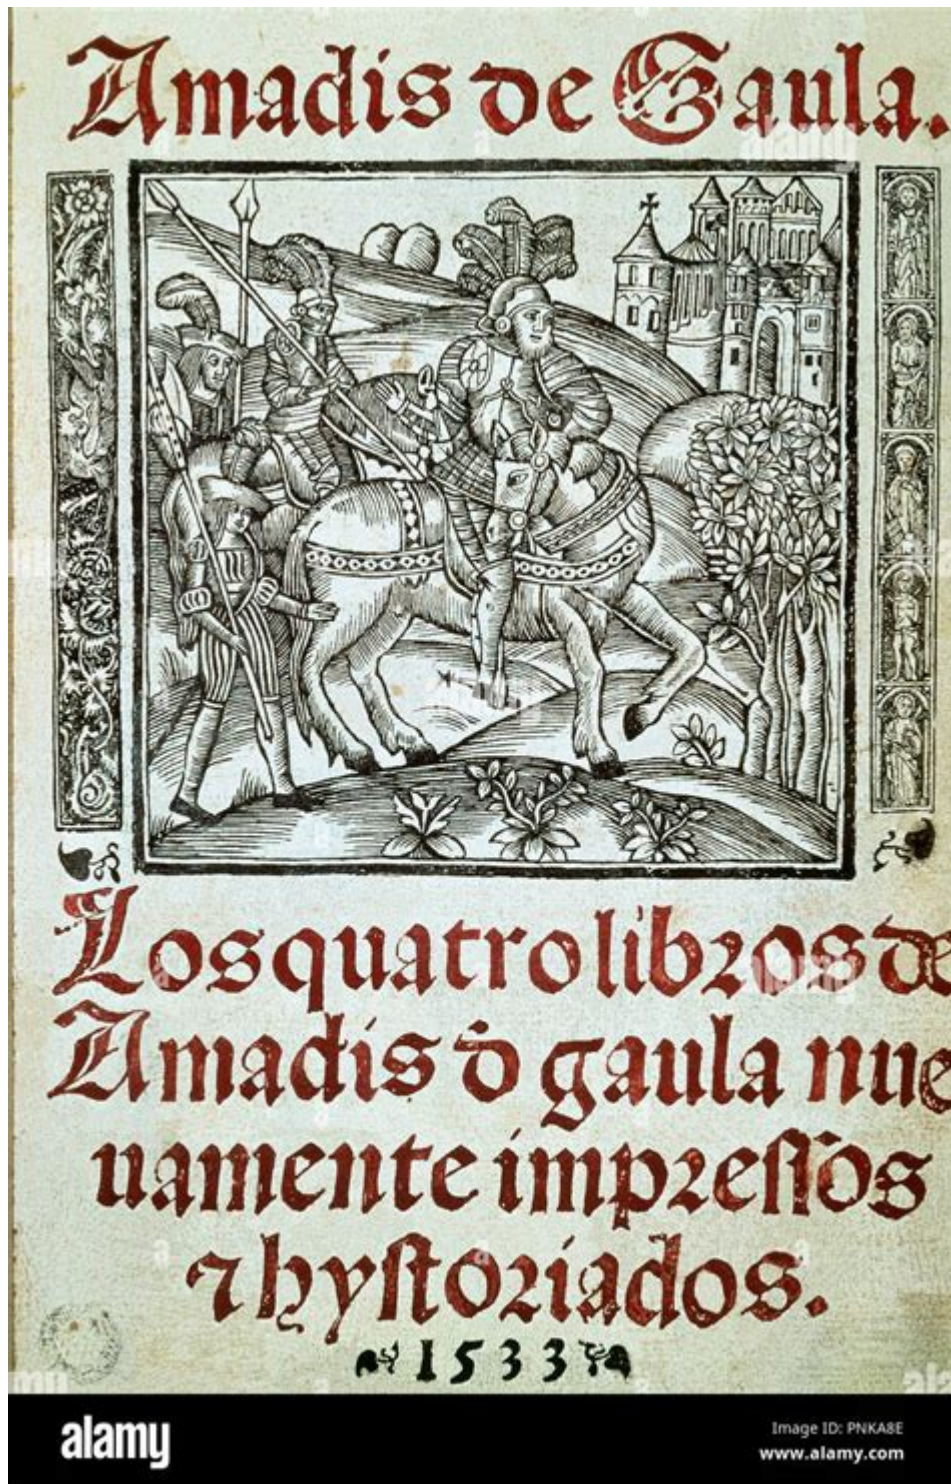 Amadis de Gaula.
Los quatro libros de
Amadis d̄ gaula nue
uamente impressos
⁊ hystoriados.
1533
alamy
Image ID: PNKA8E
www.alamy.com